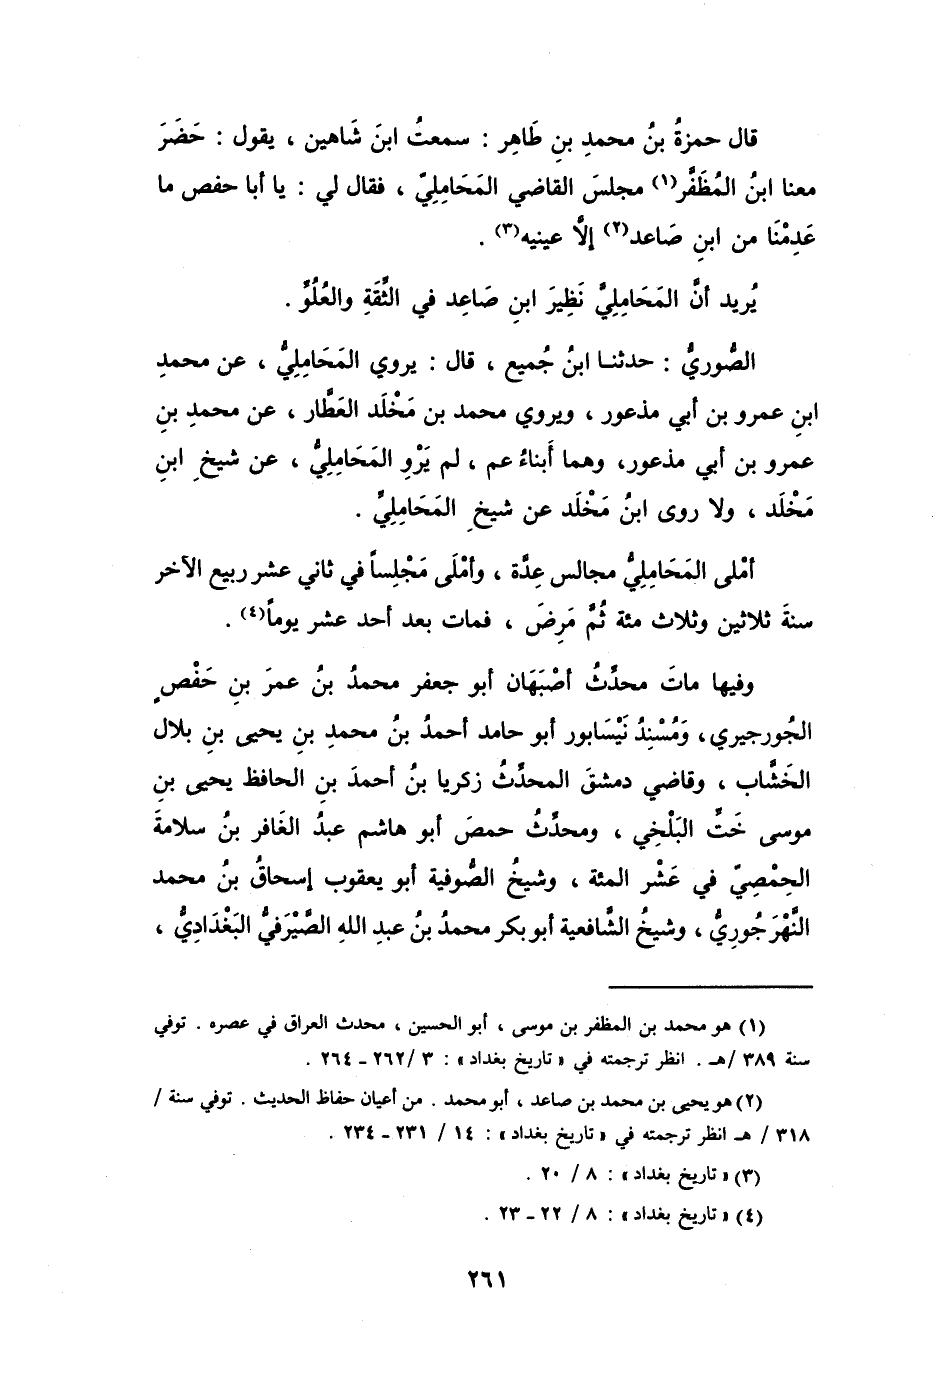 قال حمزةُ بنُ محمدِ بنِ طَاهِر : سمعتُ ابنَ شَاهين ، يقول : حَضَرَ
معنا ابنُ المُظَفَّر(١) مجلسَ القاضي المَحَامِليّ ، فقال لي : يا أبا حفص ما
عَدِمْنَا من ابنِ صَاعد(٢) إلَّا عينيه(٣) .
يُريد أنَّ المَحَامليَّ نَظِيرَ ابنِ صَاعِد في الثِّقَةِ والعُلُوِّ .
الصُّوريُّ : حدثنا ابنُ جُميع ، قال : يروي المَحَامِلِيُّ ، عن محمدِ
ابنِ عمرو بن أبي مذعور ، ويروي محمد بن مَخْلَد العَطَّار ، عن محمدِ بنِ
عمرو بن أبي مذعور، وهما أَبناءُ عم ، لم يَرْوِ المَحَامِلِيُّ ، عن شيخِ ابنِ
مَخْلَد ، ولا روى ابنُ مَخْلَد عن شيخِ المَحَامِليِّ .
أمْلى المَحَامِلِيُّ مجالس عِدَّة ، وأمْلَى مَجْلِساً في ثاني عشر ربيع الآخر
سنةَ ثلاثين وثلاث مئة ثُمَّ مَرِضَ ، فمات بعد أحد عشر يوماً(٤) .
وفيها ماتَ محدِّثُ أصْبَهَان أبو جعفر محمدُ بنُ عمرَ بنِ حَفْصٍ
الجُورجيري، وَمُسْنِدُ نَيْسَابور أبو حامد أحمدُ بنُ محمدِ بنِ يحيى بنِ بلال
الخَشَّاب ، وقاضي دمشقَ المحدِّثُ زكريا بنُ أحمدَ بنِ الحافظ يحيى بنِ
موسى خَتِّ البَلْخِي ، ومحدِّثُ حمصَ أبو هاشم عبدُ الغَافر بنُ سلامةَ
الحِمْصِيّ في عَشْر المئة ، وشيخُ الصُّوفية أبو يعقوب إسحاقُ بنُ محمد
النَّهْرَجُورِيُّ ، وشيخُ الشَّافعية أبو بكر محمدُ بنُ عبدِ اللهِ الصَّيْرَفيُّ البَغْدَادِيُّ ،
(١) هو محمد بن المظفر بن موسى ، أبو الحسين ، محدث العراق في عصره . توفي
سنة ٣٨٩ /هـ . انظر ترجمته في « تاريخ بغداد » : ٣ /٢٦٢ـ ٢٦٤ .
(٢) هو يحيى بن محمد بن صاعد ، أبو محمد . من أعيان حفاظ الحديث . توفي سنة /
٣١٨ / هـ انظر ترجمته في « تاريخ بغداد » : ١٤ / ٢٣١ ـ ٢٣٤ .
(٣) « تاريخ بغداد » : ٨ / ٢٠ .
(٤) « تاريخ بغداد » : ٨ / ٢٢ ـ ٢٣ .
٢٦١